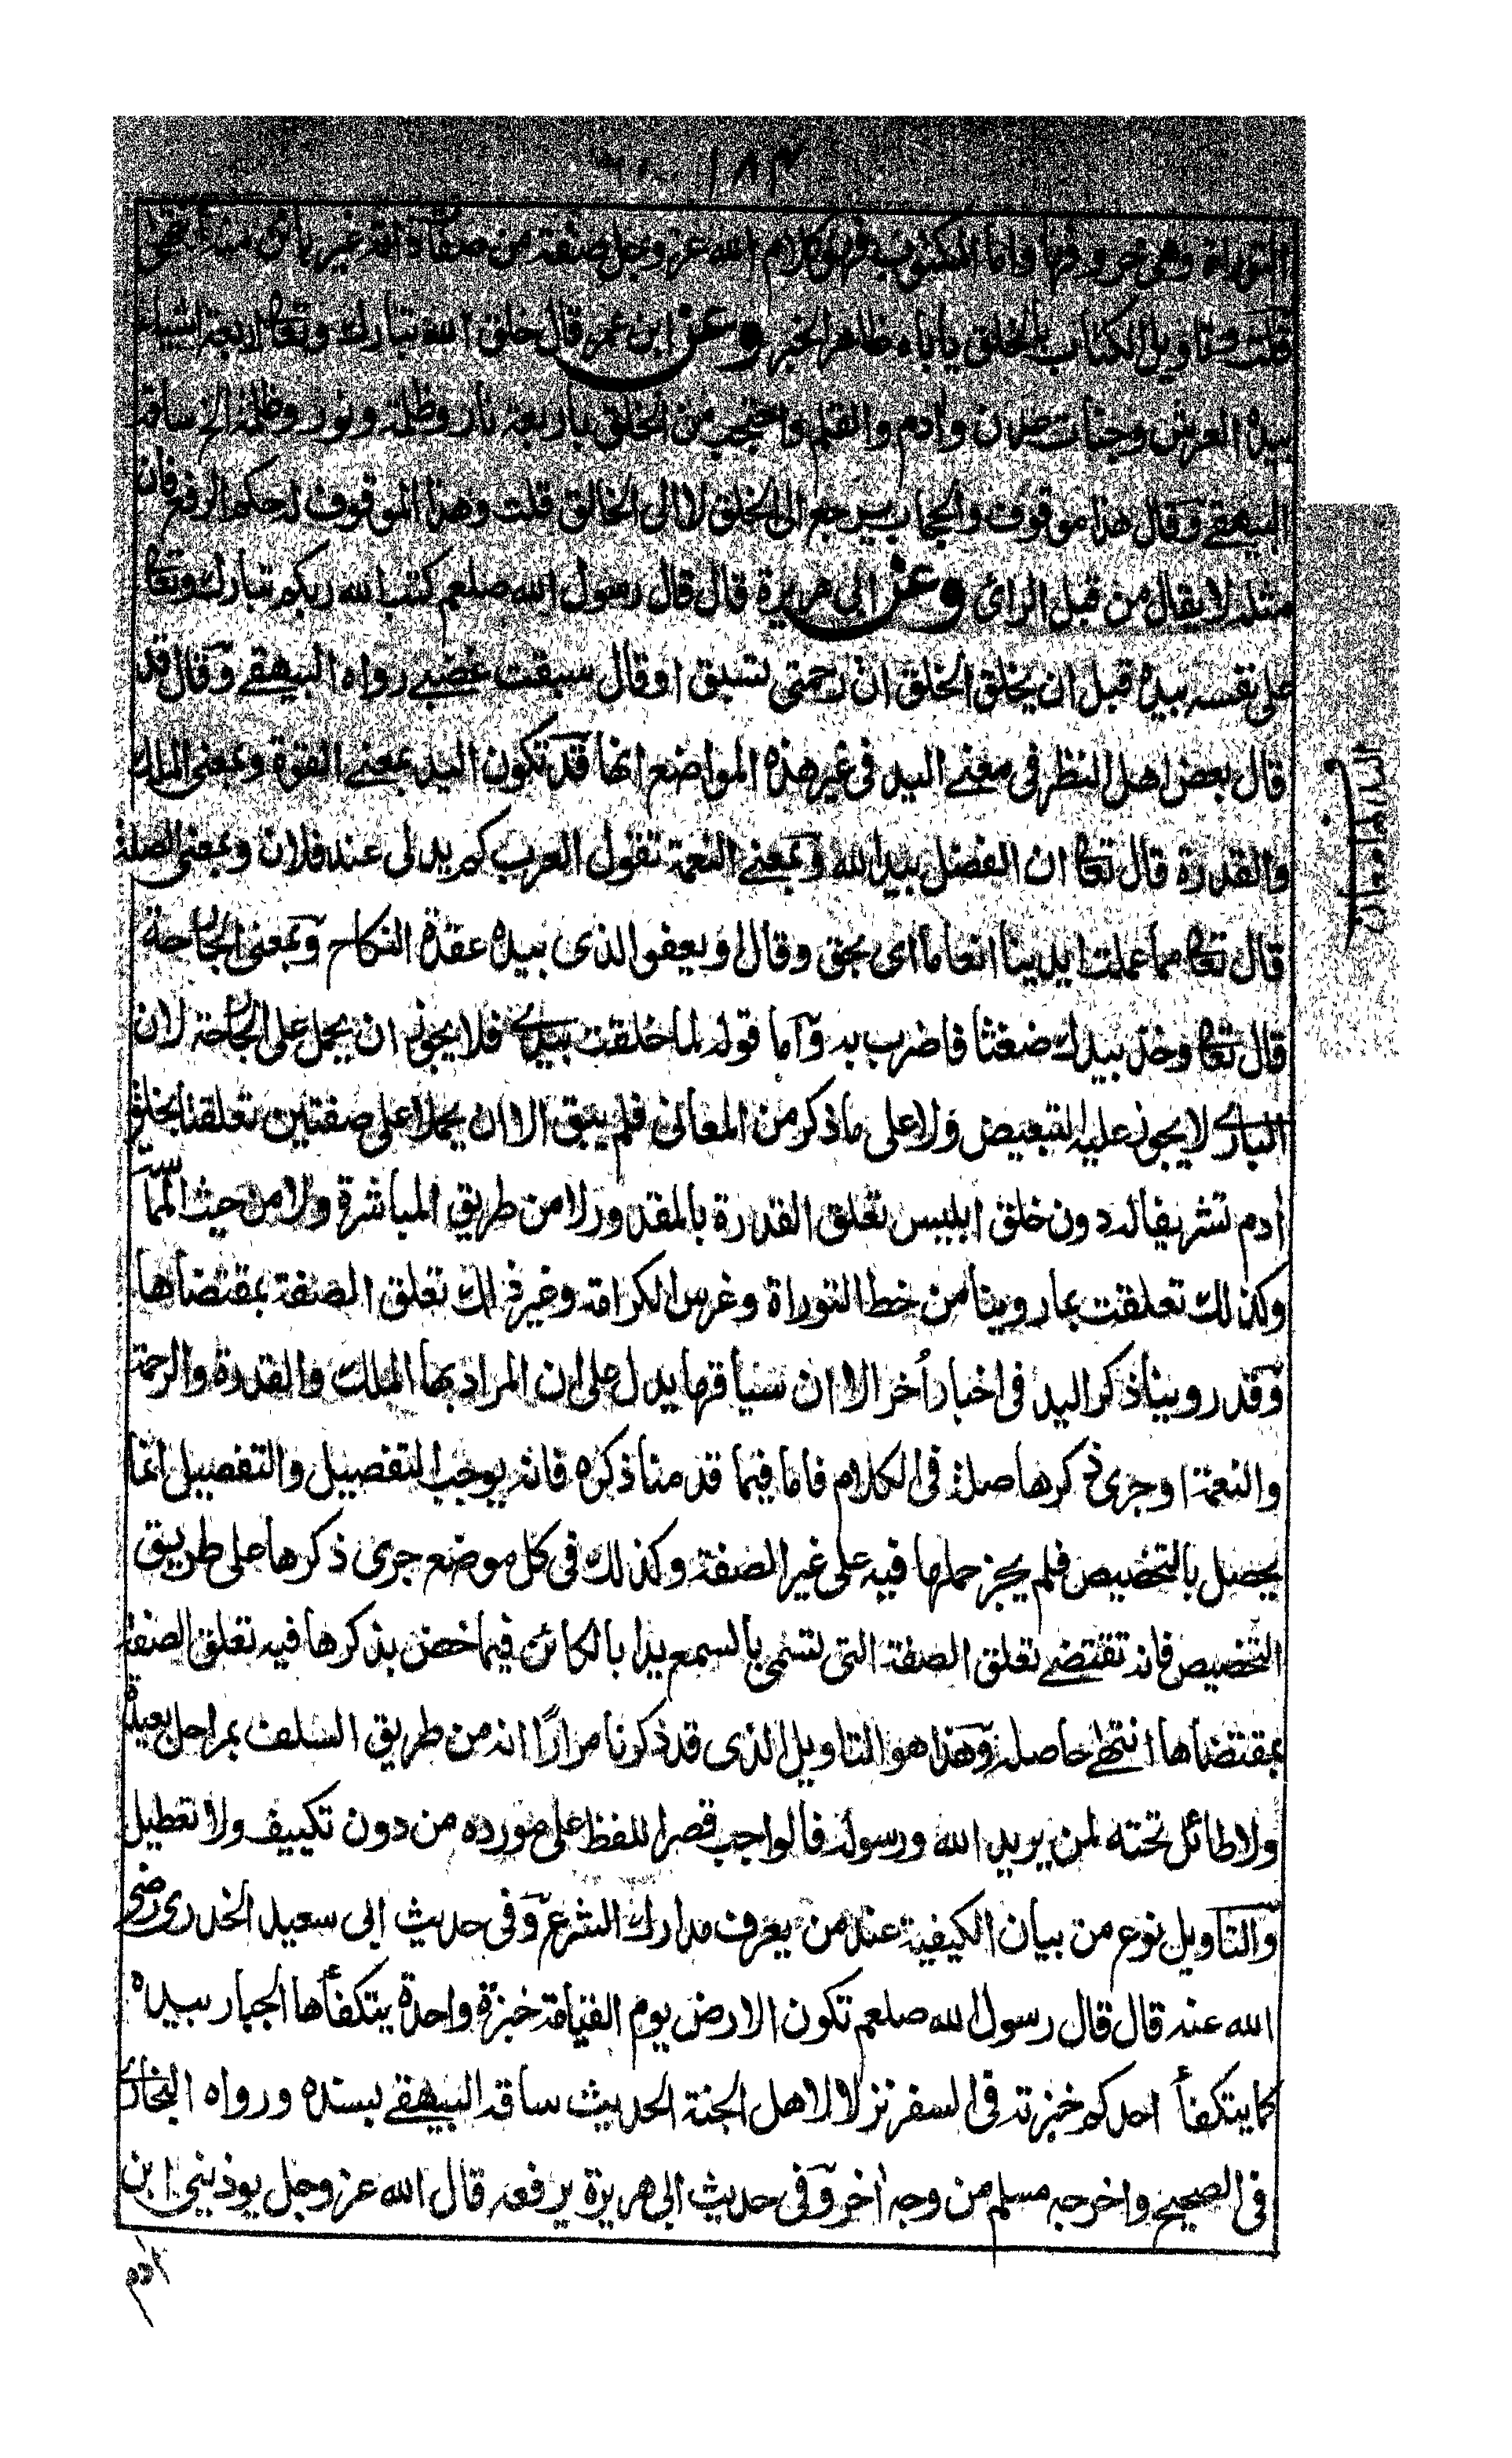 ١٨٣
التوراة وهى حروفها واما المكتوب فهو كلام الله عز وجل صفة من صفاة الله غير بائن منه انتهى
قلت وتاويل الكتاب بالخلق ياباه ظاهر الخبر وعن ابن عمر قال خلق الله تبارك وتعالى اربعة اشياء
بيده العرش وجنات عدن وادم والقلم واحتجب من الخلق باربعة نار وظلمة ونور وظلمة الخ ساقه
البيهقے وقال هذا موقوف والحجاب يرجع الى الخلق لا الى الخالق قلت وهذا الموقوف له حكم الرفع فان
مثله لا يقال من قبل الرائ وعن ابي هريرة قال قال رسول الله صلعم كتب الله ربكم تبارك وتعا
على نفسه بيده قبل ان يخلق الخلق ان رحمتى تسبق او قال سبقت غضبے رواه البيهقے وقال قد
قال بعض اهل النظر فى معنے اليد فى غير هذه المواضع انها قد تكون اليد بمعنے القوة وبمعنى الملك
والقدرة قال تعا ان الفضل بيد الله وبمعنے النعمة تقول العرب كم يد لى عند فلان وبمعنى الصلة
قال تعا مما عملت ايدينا انعاما اى بحق وقال او يعفو الذى بيده عقدة النكاح وبمعنى الجارحة
قال تعا وخذ بيدك ضغثا فاضرب به واما قوله لما خلقت بيدے فلا يجوز ان يحمل على الجارحة لان
البارے لا يجوز عليه التبعيض ولا على ما ذكر من المعانى فلم يبق الا ان يحملا على صفتين تعلقتا بخلق
ادم تشريفا له دون خلق ابليس تعلق القدرة بالمقدور لا من طريق المباشرة ولا من حيث المماسّة
وكذلك تعلقت بما روينا من خط التوراة وغرس الكرامة وغير ذلك تعلق الصفة بمقتضاها
وقد روينا ذكر اليد فى اخبار اُخر الا ان سياقها يدل على ان المراد بها الملك والقدرة والرحمة
والنعمة او جرى ذكرها صلة فى الكلام فاما فيما قدمنا ذكره فانه يوجب التفصيل والتفصيل انما
يحصل بالتخصيص فلم يجز حملها فيه على غير الصفة وكذلك فى كل موضع جرى ذكرها على طريق
التخصيص فانه تقتضے تعلق الصفة التى تسمى بالسمع يدا بالكائن فيما خص بذكرها فيه تعلق الصفة
بمقتضاها انتهے حاصله وهذا هو التاويل الذى قد ذكرنا مرارًا انه من طريق السلف بمراحل بعيدة
ولا طائل تحته لمن يريد الله ورسوله فالواجب قصر اللفظ على مورده من دون تكييف ولا تعطيل
والتاويل نوع من بيان الكيفية عند من يعرف مدارك الشرع وفى حديث ابى سعيد الخدرى رضى
الله عنه قال قال رسول الله صلعم تكون الارض يوم القيامة خبزة واحدة يتكفأها الجبار بيده
كما يتكفأ احدكم خبزته فى السفر نزلا لاهل الجنة الحديث ساقه البيهقے بسنده ورواه البخارے
فى الصحيح واخرجه مسلم من وجه اخر وفى حديث ابى هريرة يرفعه قال الله عز وجل يوذينى ابن
ادم